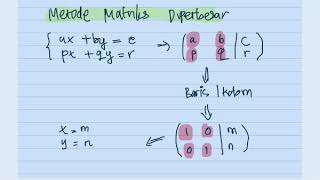 Metode Matriks Diperbesar
{ ax + by = c
px + qy = r → ( a b | c
p q | r )
⇓
Baris / kolom
⇓
x = m
y = n ⇐ ( 1 0 | m
0 1 | n )